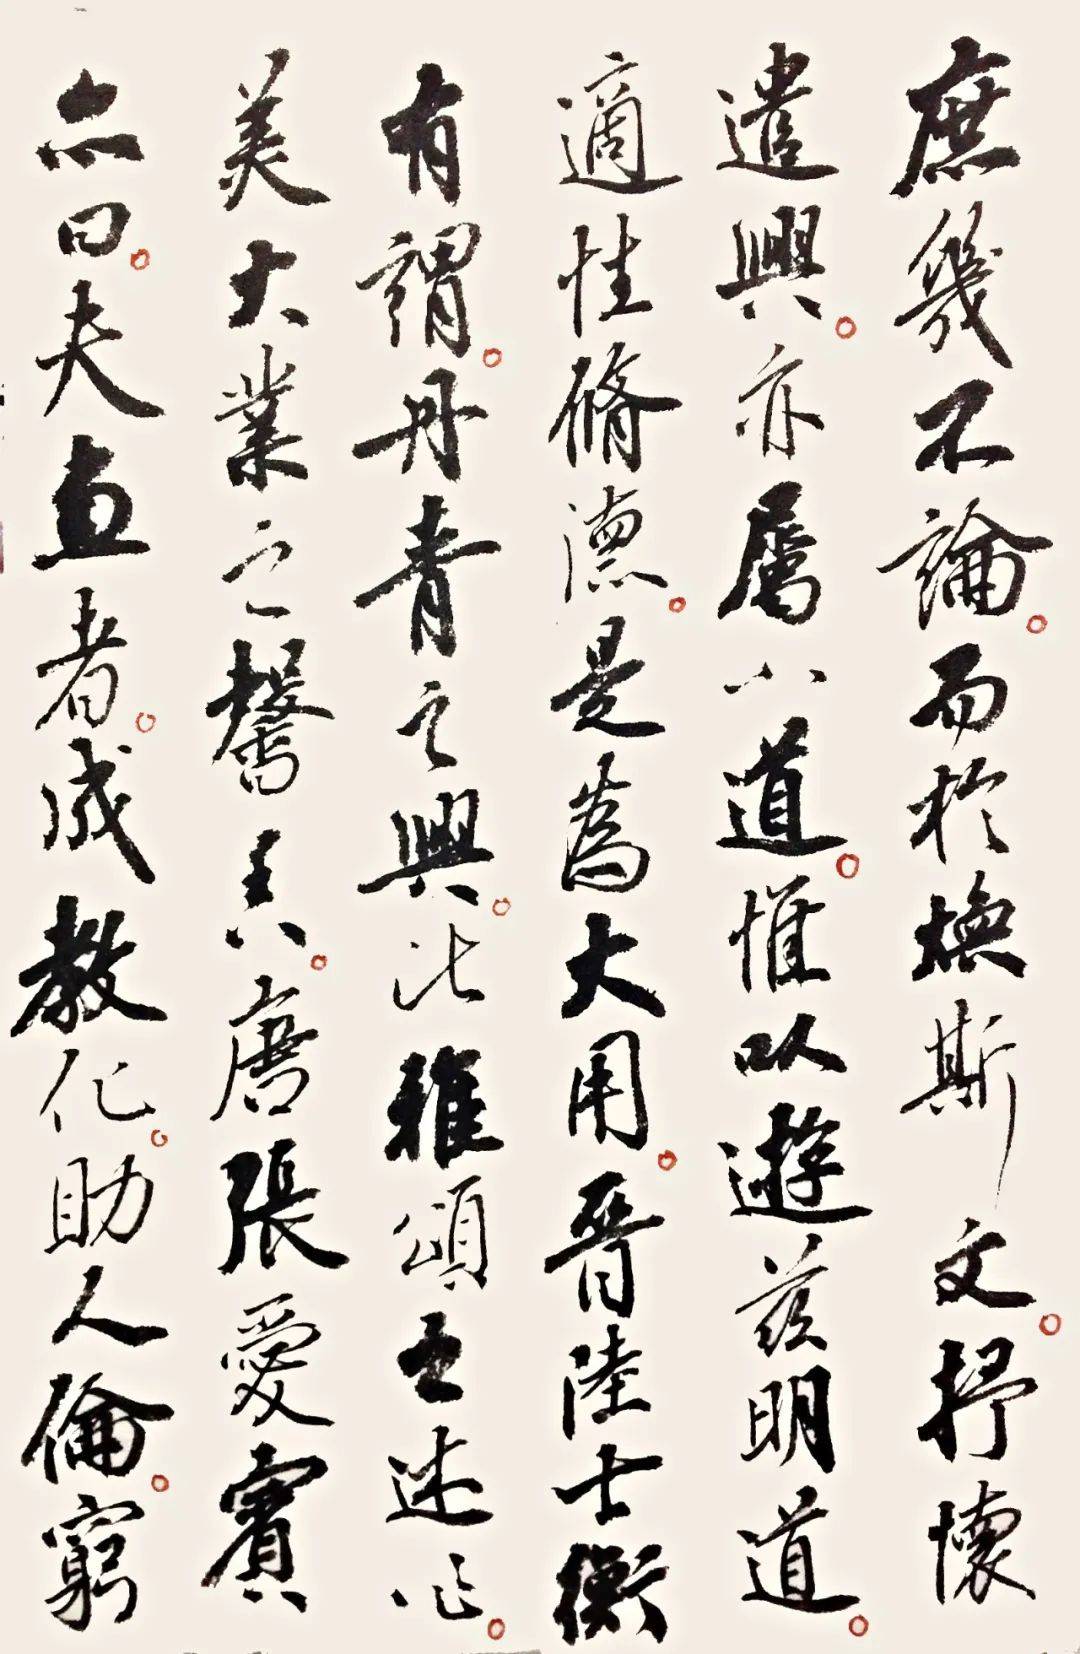 庶幾不論。而於煥斯文。抒懷
遣興。亦屬小道。惟以遊茲明道。
適性脩德。是為大用。晉陸士衡
有謂。丹青之興。比雅頌之述作。
美大業之馨香。唐張愛賓
亦曰。夫畫者。成教化。助人倫。窮